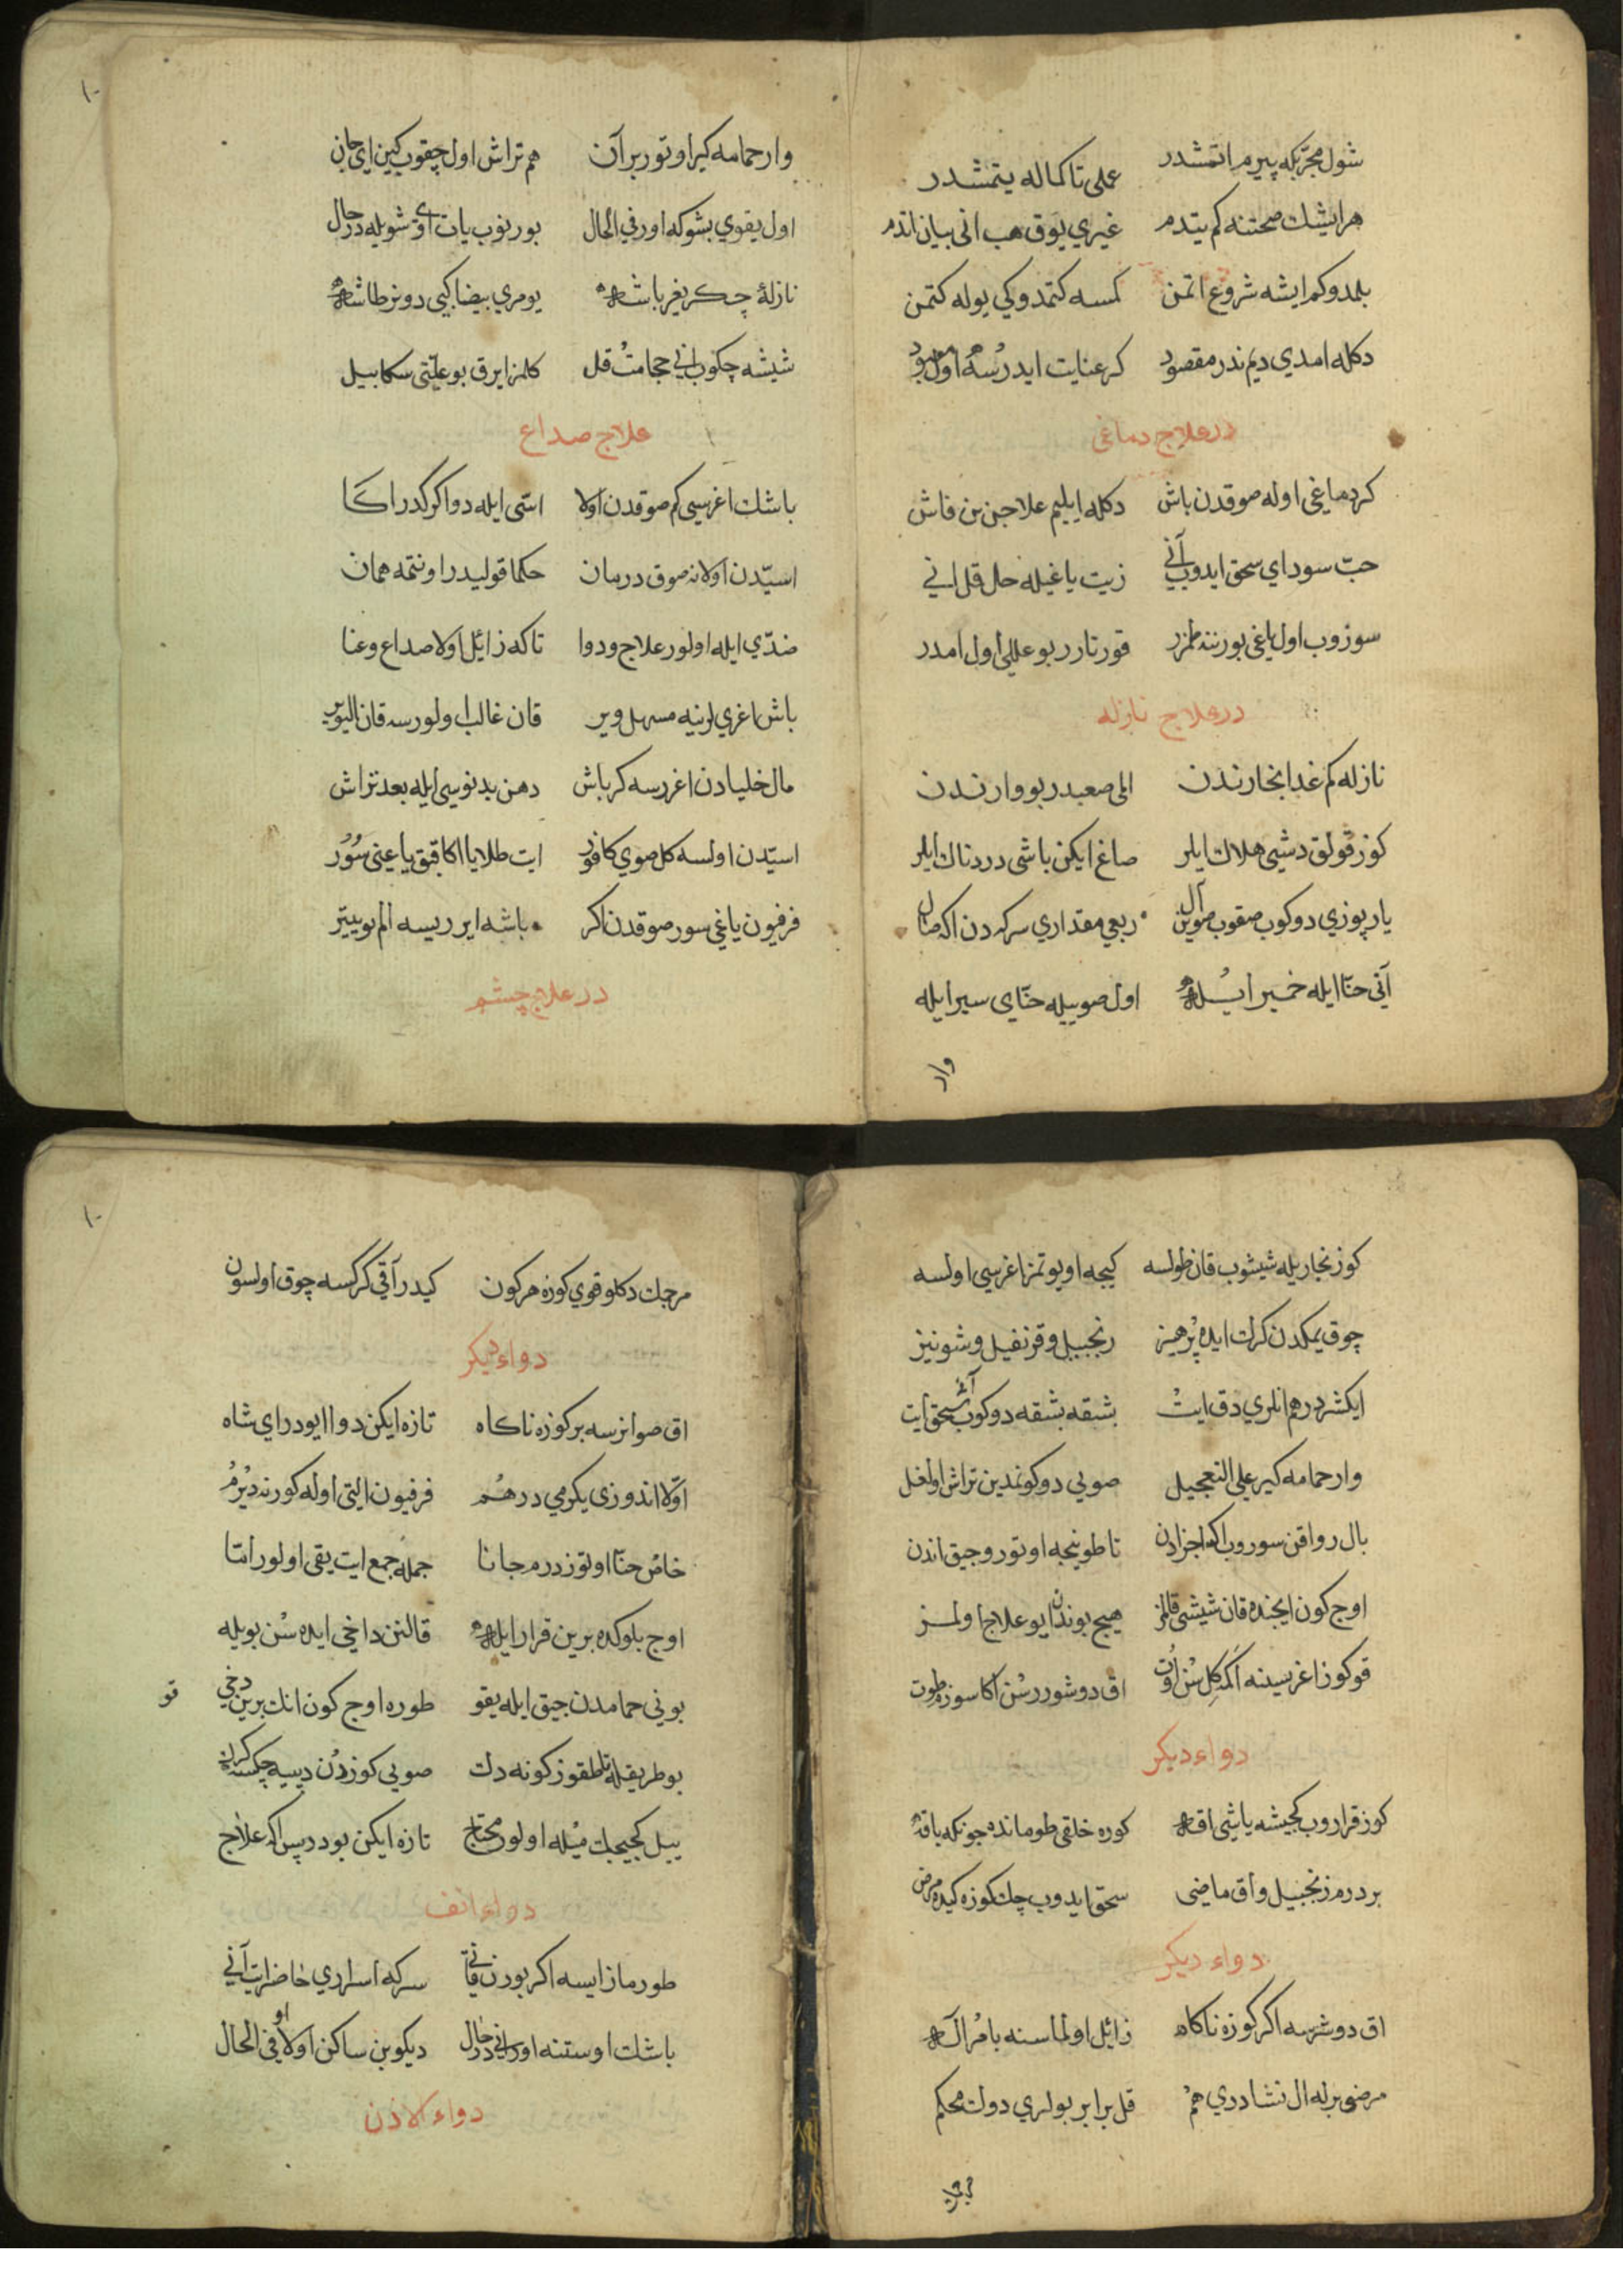 شول مجرّبكه پيرم اتمشدر عملى تا كماله يتمشدر
هر ايشك صحتنه كم يتدم غيري يوق هب انى بيان اتدم
بلمدوكم ايشه شروع اتمن كمسه كتمدوكى يوله كتمن
دكله امدي ديم ندر مقصود كر عنايت ايدرسه اول معبود
در علاج دماغى
كر دماغى اوله صوقدن باش دكله ايليم علاجن بن فاش
حبّ سوداي سحق ايدوب آني زيت ياغيله حل قل اني
سوزوب اول ياغى بورننه طمزر قورتارر بو عللى اول امدر
در علاج نازله
نازله كم غدا بخارندن المى صعبدر بو وارندن
كوز قولق دشى هلاك ايلر صاغ ايكن باشى دردناك ايلر
يارپوزي دوكوب صقوب صوين آل ربعي مقداري سركه دن اكه صال
آنى حنّا ايله خمير ايله اول صوييله حنّاى سير ايله
وار
وار حمامه كير اوتور بر آن هم تراش اول چقوب كين اى جان
اول يقوي بشوكه اور في الحال بورنوب يات اوى شويله درحال
نازلۀ چكر يغر باشه يومري بيضا كبى دونر طاشه
شيشه چكوب اني حجامت قل كلمز ايرق بو علّتى سكا بيل
علاج صداع
باشك اغرسى كم صوقدن اولا اسّى ايله دوا كركدر اكا
اسيّدن اولانه صوق درمان حكما قوليدر اونتمه همان
ضدّي ايله اولور علاج ودوا تا كه زائل اولا صداع وعنا
باش اغري لرينه مسهل وير قان غالب اولورسه قان اليوير
مالخليادن اغررسه كر باش دهن بدنوسى ايله بعد تراش
اسيّدن اولسه كل صوي كافور ايت طلايا اكا قبق ياغنى سور
فرفيون ياغى سور صوقدن اكر باشه ايرريسه الم بو ييتر
در علاج چشم
كوز بخاريله شيشوب قان طولسه كيجه اويوتمز اغرسى اولسه
چوق يمكدن كرك ايده پرهيز زنجبيل وقرنفيل وشونيز
ايكشر درهم انلري دق ايت بشقه بشقه دوكوب سحق ايت
وار حمامه كير على التعجيل صويى دوكونمدين تراش اولغل
بال رواقن سوروب اكه اجزادن تا طوينجه اوتور وجيق اندن
اوج كون ايجنده قان شيشى قالمز هيچ بوندن ايو علاج اولمز
قو كوز اغرسينه اكمكل سن اوت اق دوشوررسن اكا سوزه طوت
دواء ديكر
كوز قراروب كجيشه ياشى اقه كوره خلقى طومانده جونكه باقه
بر درم زنجبيل واق ماضى سحق ايدوب چك كوزه كيده مرض
دواء ديكر
اق دوشرسه اكر كوزه ناكاه زائل اولماسنه بامر اله
مرضى برله ال نشادري هم قل برابر بولري دوك محكم
مرجك دكلو قوي كوزه هر كون كيدر آقى كركسه چوق اولسون
دواء ديكر
اق صو انرسه بر كوزه ناكاه تازه ايكن دوا ايودر اى شاه
اوّلا اندوزى يكرمي درهم فرفيون التى اوله كورنه ديرم
خاص حنّا اوتوز درم جانا جمله جمع ايت يقى اولور امّا
اوج بلوكده برين قرار ايله قالنن داخى ايده سن بويله
بوني حمامدن جيق ايله يقو طوره اوج كون انك برين دخى
بو طريقله تا طقوز كونه دك صويى كوزدن ديسه چكسه كرك
ييل كجيجك ميله اولور محتاج تازه ايكن بودر پس اكه علاج
دواء انف
طورماز ايسه اكر بورن قانى سركه اسراري حاضر ايت آني
باشك اوستنه اور انى درحال ديكوبن ساكن اولا او في الحال
دواء لاذن